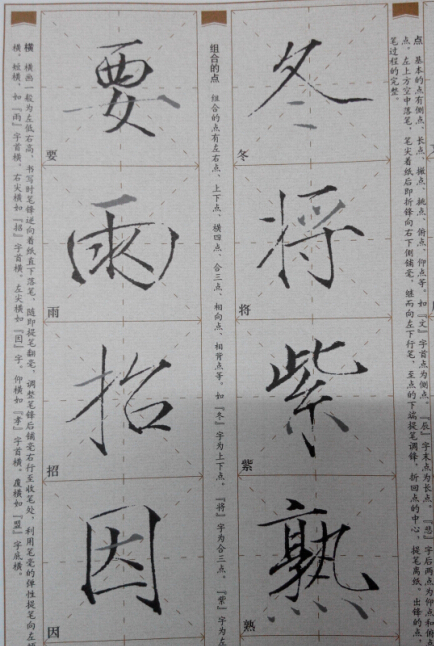 点 基本的点有侧点、长点、撇点、挑点、俯点、仰点等。如『文』字首点为侧点,『辰』字末点为长点,『思』字后两点为仰点和俯点
点,左上方空中落笔,笔尖着纸后即折锋向右下侧铺毫,继而向左下行笔,至点的下端提笔调锋,折回点的中心,提笔离纸,出锋的点,
笔过程的完整
冬
冬
将
将
紫
紫
熟
熟
组合的点 组合的点有左右点、上下点、横四点、合三点、相向点、相背点等。如『冬』字为上下点,『将』字为合三点,『紫』字为左
要
要
雨
雨
招
招
因
因
横 横画一般为左低右高,书写时笔锋逆向着纸直下落笔,随即提笔翻毫,调整笔锋后铺毫右行至收笔处,利用笔毫的弹性提笔向左
横、短横,如『雨』字首横,右尖横如『招』字首横,左尖横如『因』字,仰横如『孝』字首横,覆横如『盟』字底横。